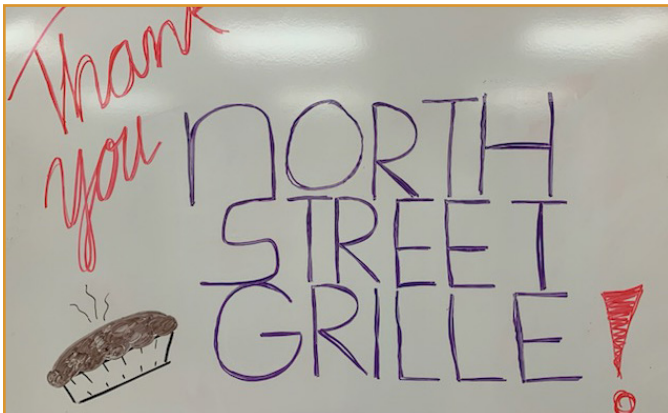 Thank
you
nORTH
STREET
GRILLE!